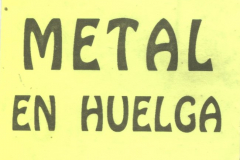 METAL
EN HUELGA